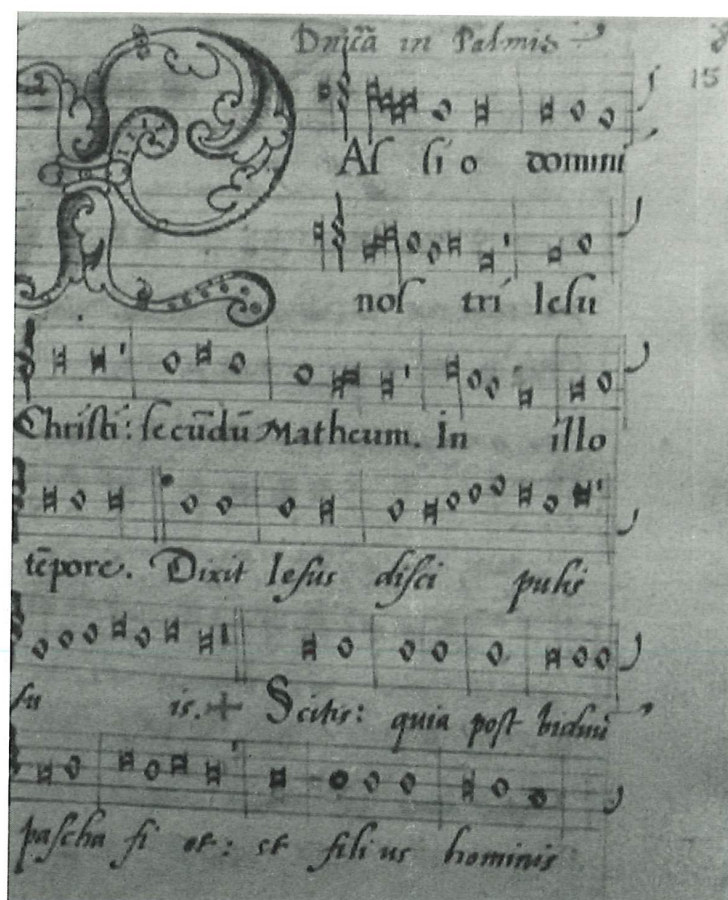 Dnicã in Palmis
15
PAſ ſi o domini
noſ tri Ieſu
Chriſti: ſecũdũ Matheum. In illo
tẽpore. Dixit Ieſus diſci pulis
ſu is. + Scitis: quia poſt biduũ
paſcha fi et: et fili us hominis